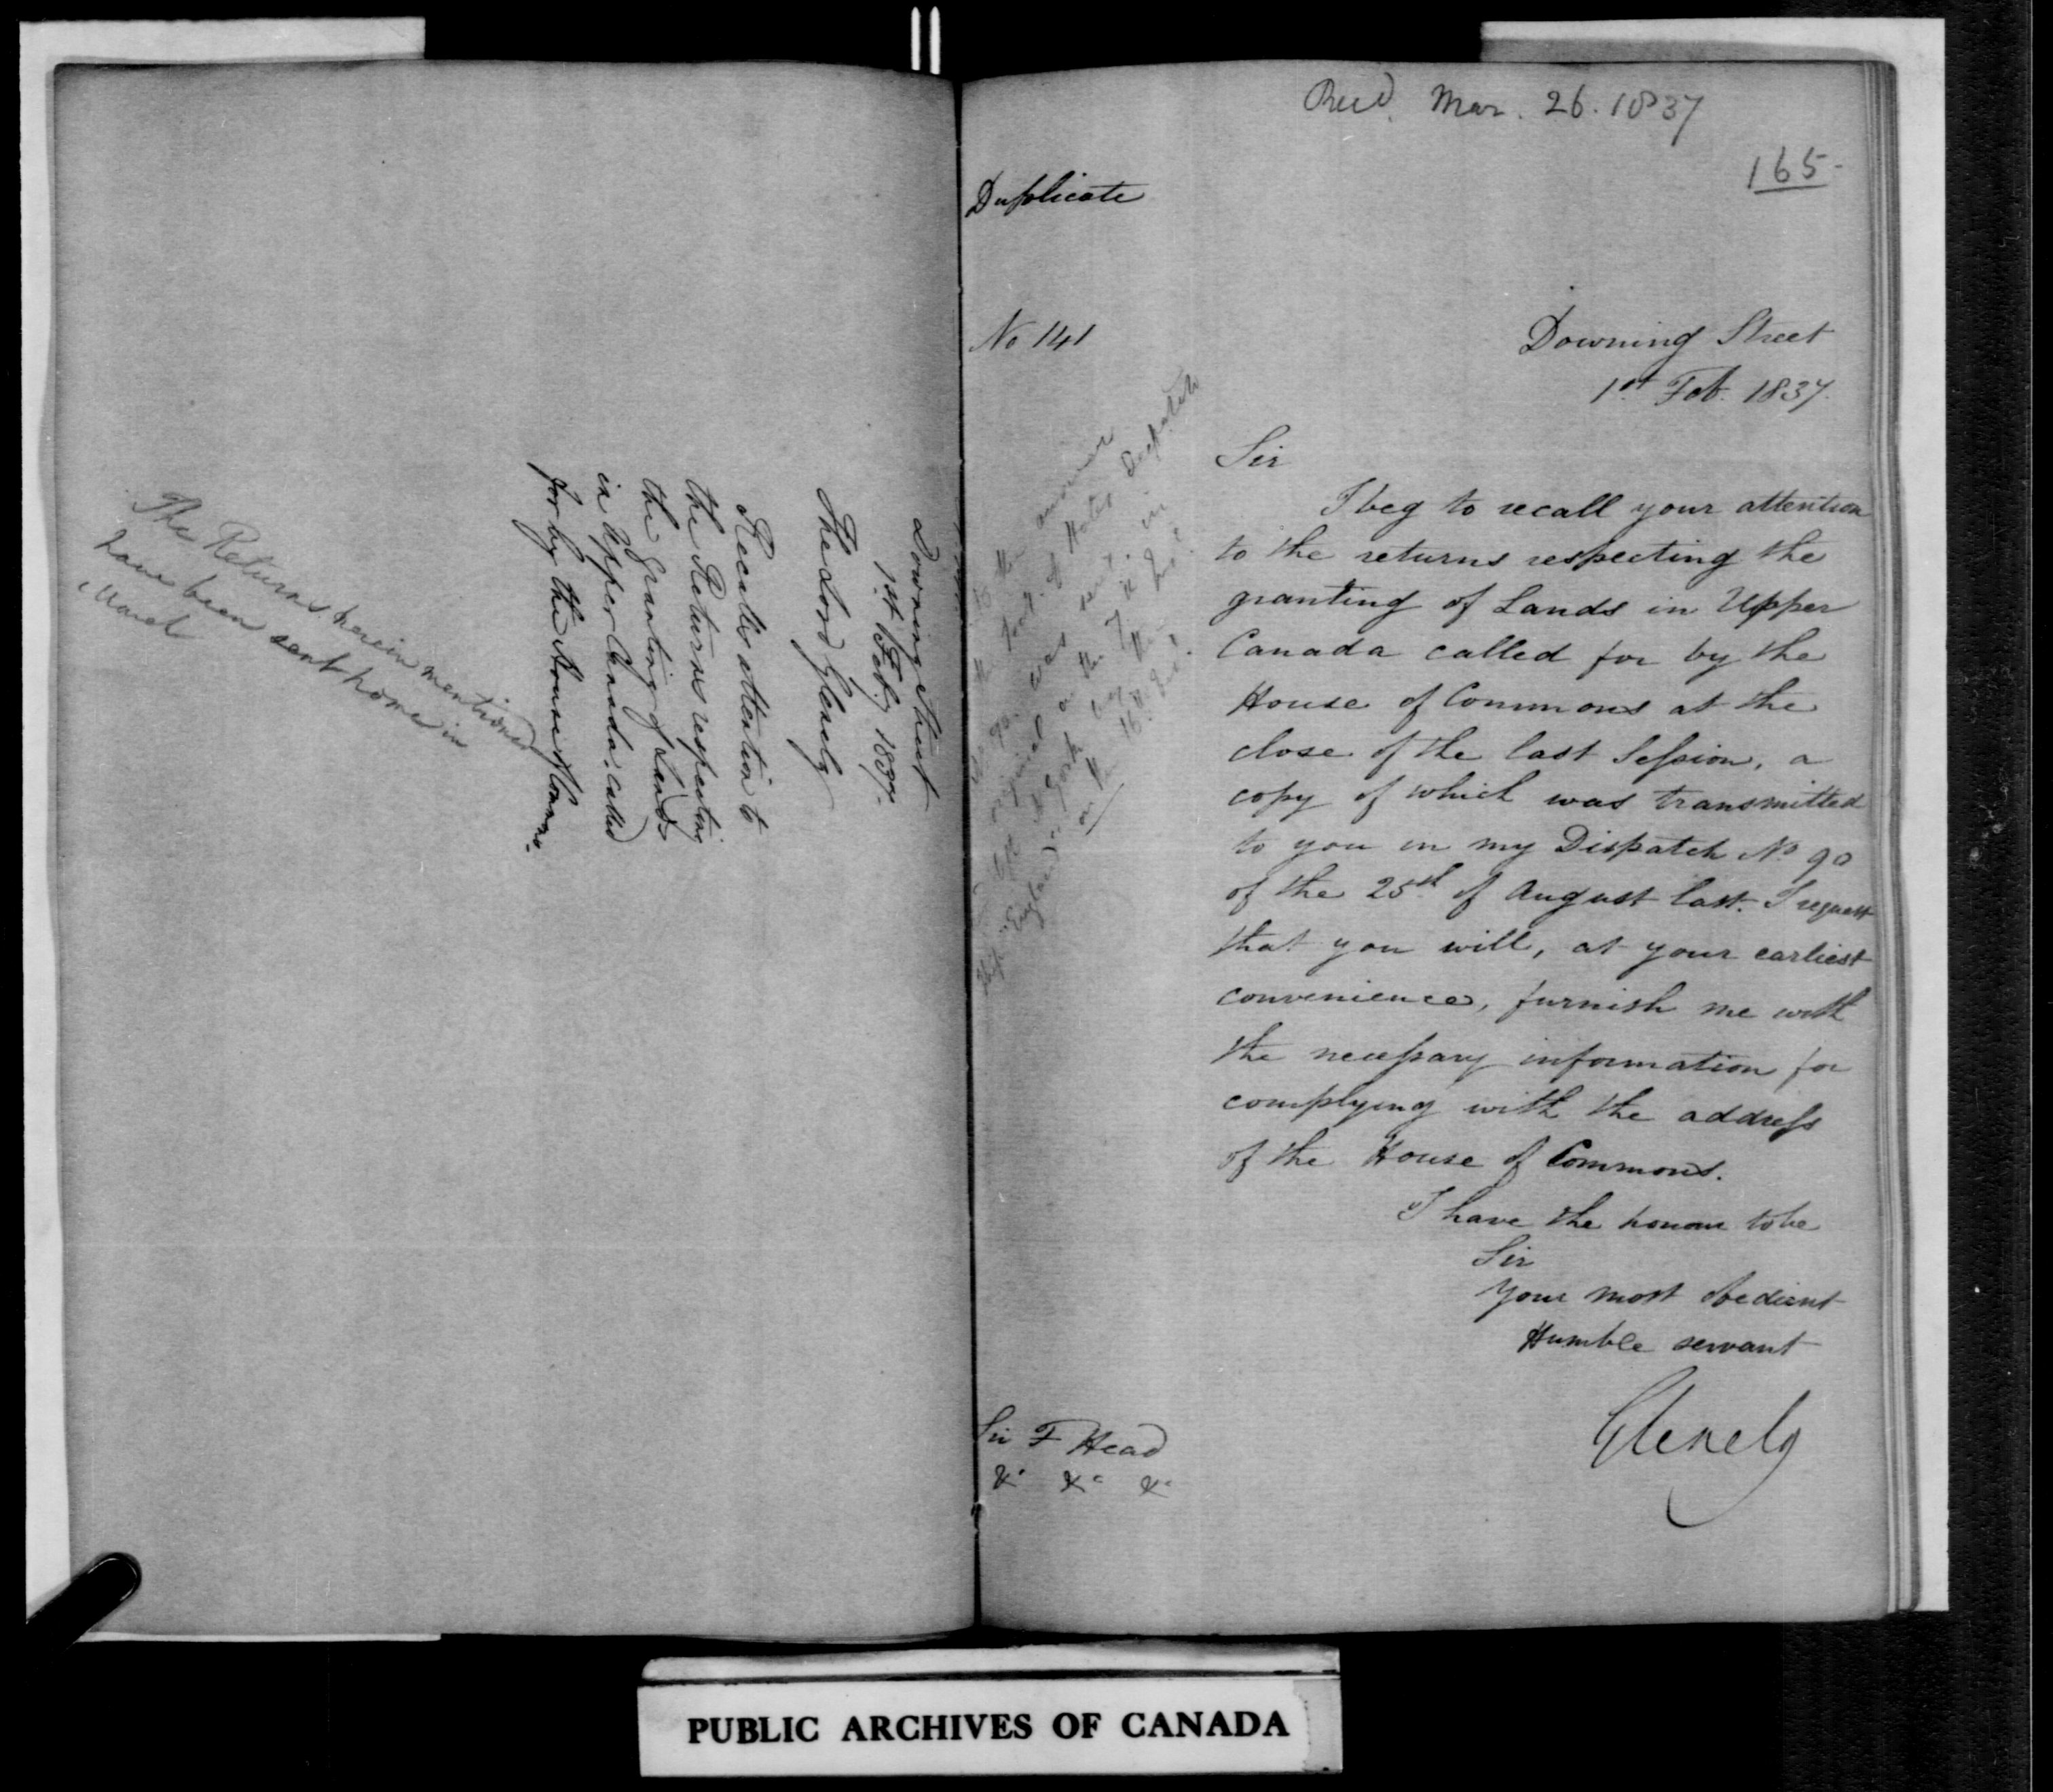 Downing Street
1st Feby 1837.
The Lord Glenelg
Recalls attention to
the Returns respecting
the Granting of Lands
in Upper Canada, called
for by the House of Commns.
The Returns herein mentioned
have been sent home in
March
Recd. Mar. 26. 1837
165-
Duplicate
No 141
Downing Street
1st Feb. 1837.
Sir
I beg to recall your attention
to the returns respecting the
granting of Lands in Upper
Canada called for by the
House of Commons at the
close of the last Session, a
copy of which was transmitted
to you in my Dispatch No 90
of the 25th of August last. I request
that you will, at your earliest
convenience, furnish me with
the necessary information for
complying with the address
of the House of Commons.
I have the honour to be
Sir
Your most obedient
Humble servant
Glenelg
the answer
of Dispatch
No 90, was sent in
on the 7th
York by the
Ship "England"
on the 16th
Sir F Head
&c &c &c
PUBLIC ARCHIVES OF CANADA